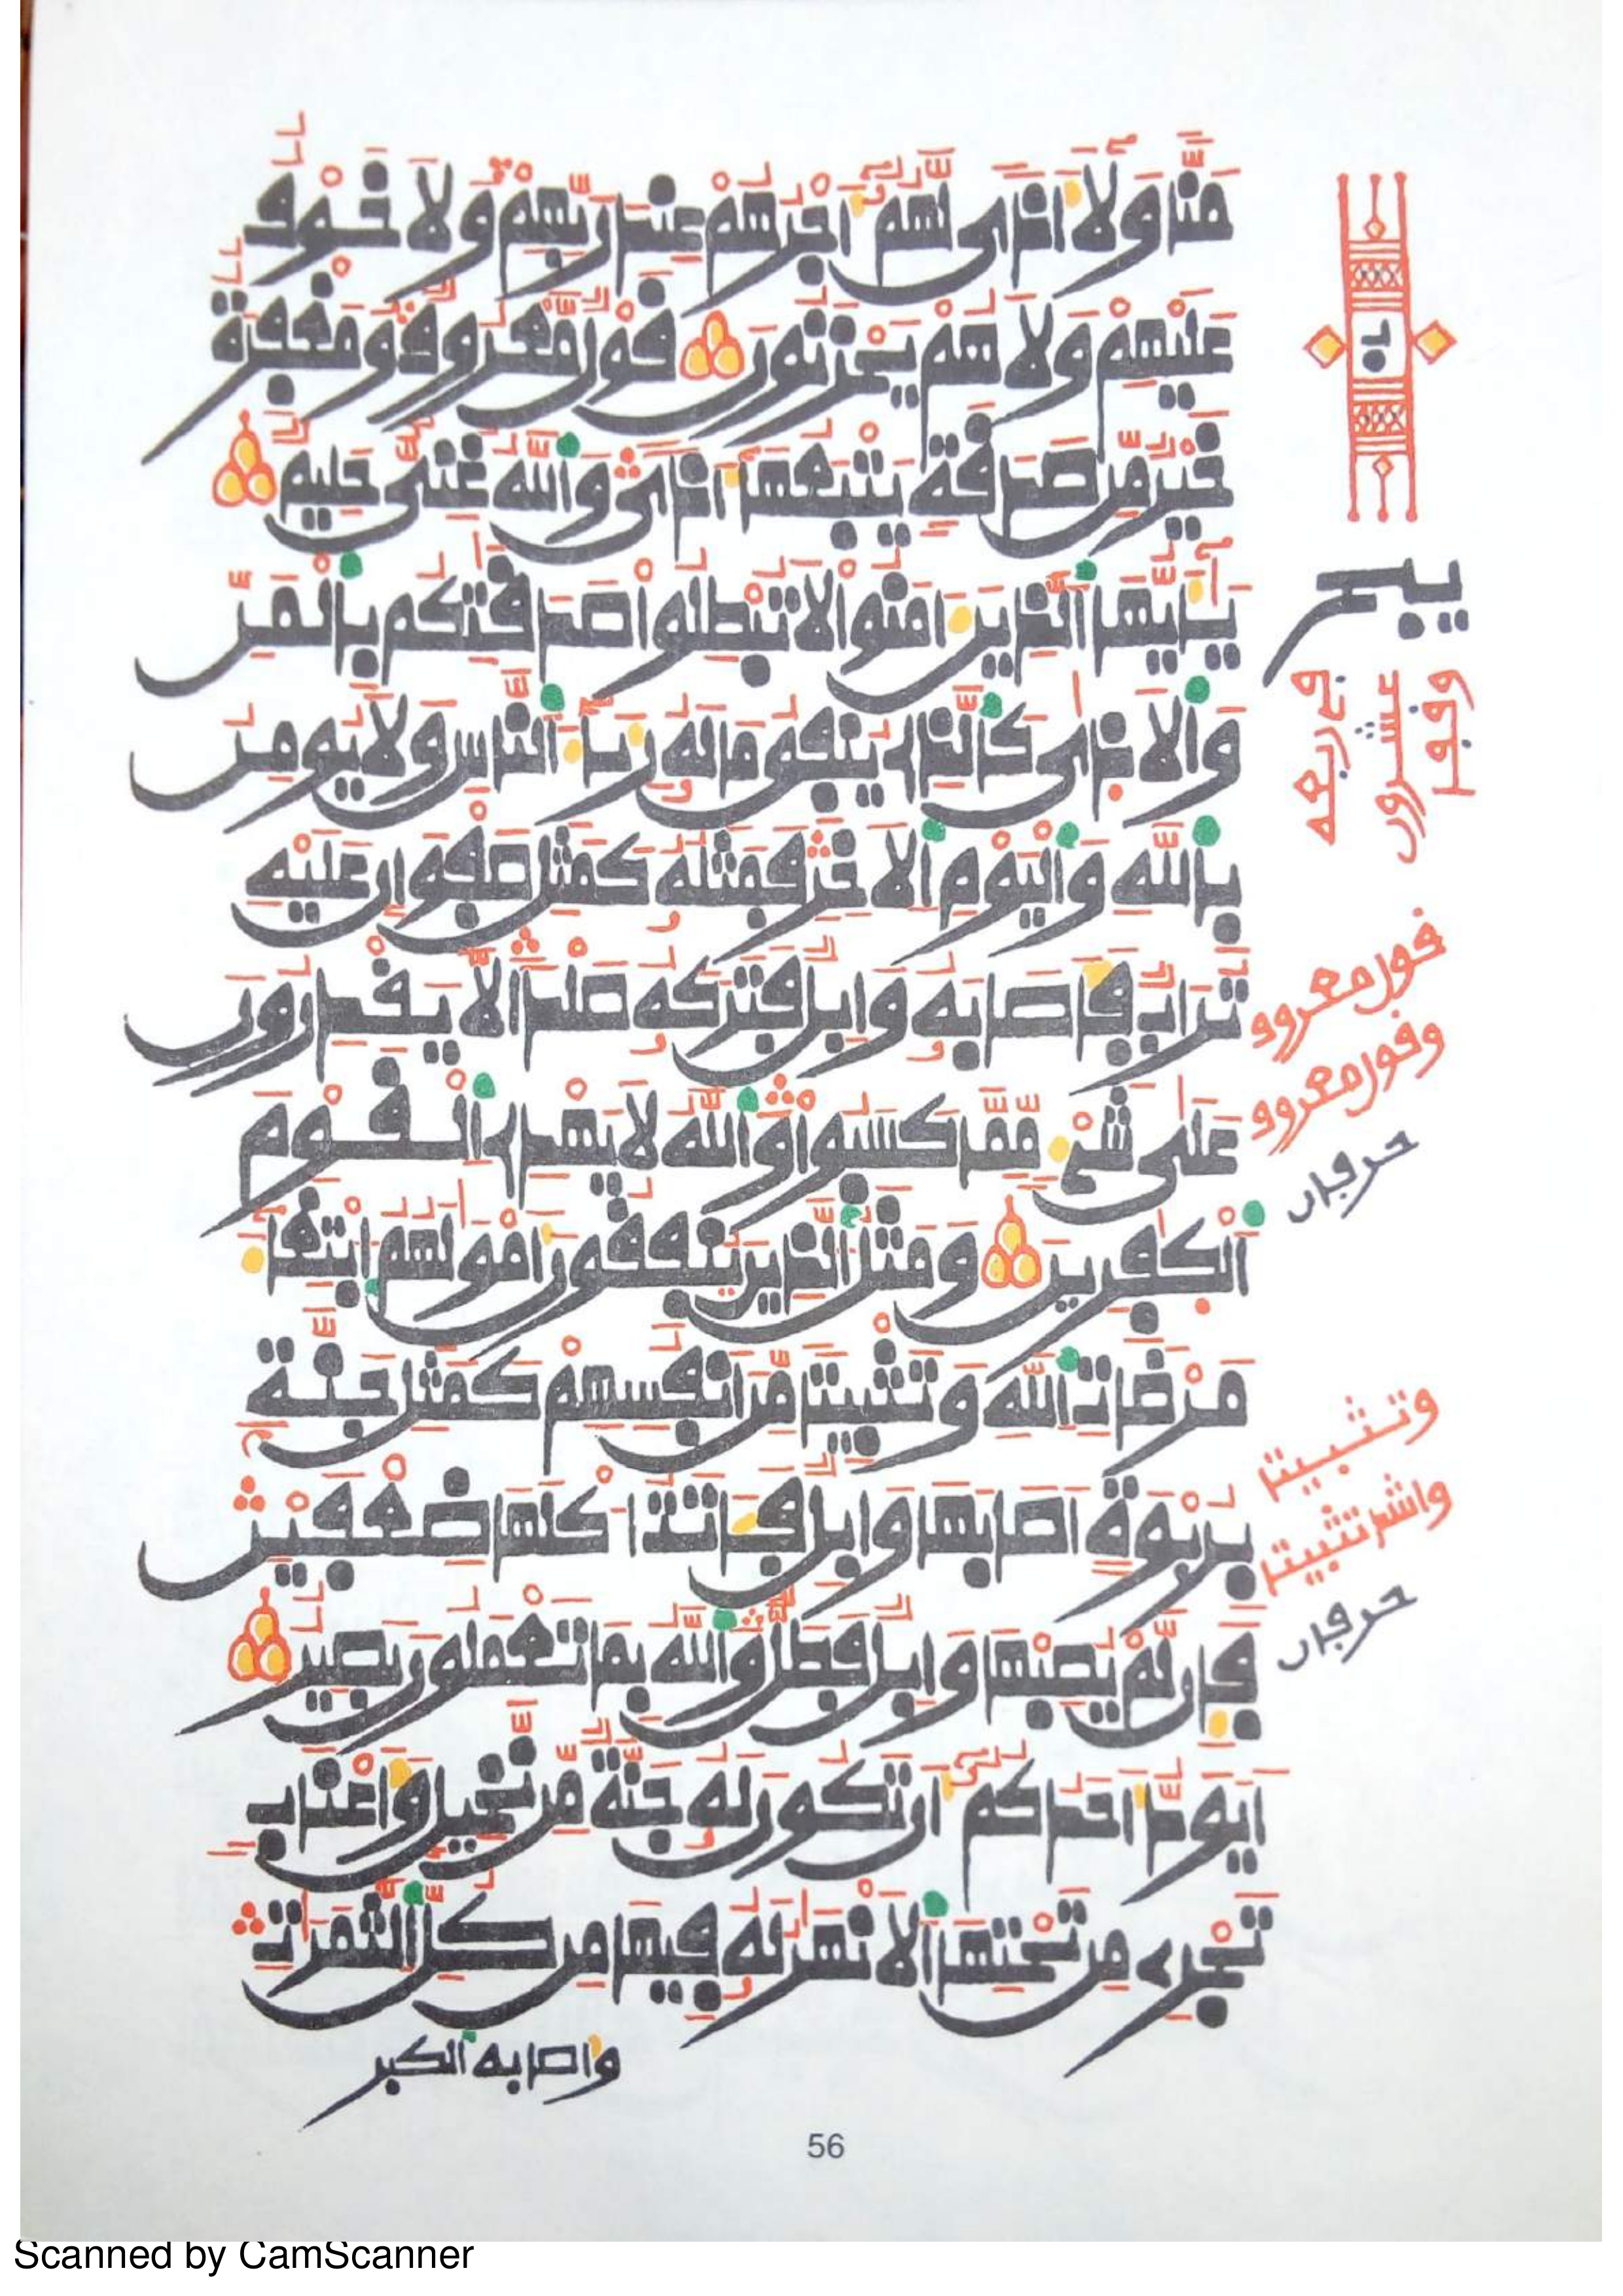 مَنّا وَلَا أَذى لَهُمُ أَجْرُهُمْ عِندَ رَبِّهِمْ وَلَا خَوْفٌ
عَلَيْهِمْ وَلَا هُمْ يَحْزَنُونَ قَوْلٌ مَّعْرُوفٌ وَمَغْفِرَةٌ
خَيْرٌ مِّن صَدَقَةٍ يَتْبَعُهَا أَذىً وَاللَّهُ غَنِيٌّ حَلِيمٌ
يَٰأَيُّهَا الَّذِينَ ءَامَنُوا لَا تُبْطِلُوا صَدَقَٰتِكُم بِالْمَنِّ
وَالَاذى كَالَّذِي يُنفِقُ مَالَهُ رِئَاءَ النَّاسِ وَلَا يُومِنُ
بِاللَّهِ وَالْيَوْمِ الَاخِرِ فَمَثَلُهُ كَمَثَلِ صَفْوَانٍ عَلَيْهِ
تُرَابٌ فَأَصَابَهُ وَابِلٌ فَتَرَكَهُ صَلْداً لَّا يَقْدِرُونَ
عَلَىٰ شَيْءٍ مِّمَّا كَسَبُوا وَاللَّهُ لَا يَهْدِي الْقَوْمَ
الْكَٰفِرِينَ وَمَثَلُ الَّذِينَ يُنفِقُونَ أَمْوَٰلَهُمُ ابْتِغَاءَ
مَرْضَاتِ اللَّهِ وَتَثْبِيتاً مِّنَ أَنفُسِهِمْ كَمَثَلِ جَنَّةٍ
بِرُبْوَةٍ أَصَابَهَا وَابِلٌ فَـَٔاتَتُ اكْلَهَا ضِعْفَيْنِ
فَإِن لَّمْ يُصِبْهَا وَابِلٌ فَطَلٌّ وَاللَّهُ بِمَا تَعْمَلُونَ بَصِيرٌ
أَيَوَدُّ أَحَدُكُمُ أَن تَكُونَ لَهُ جَنَّةٌ مِّن نَّخِيلٍ وَأَعْنَابٍ
تَجْرِي مِن تَحْتِهَا الَانْهَٰرُ لَهُ فِيهَا مِن كُلِّ الثَّمَرَٰتِ
وأصابه الكبر
قول معروف
وقول معروف
حرفان
وتثبيتا
وأشد تثبيتا
حرفان
56
Scanned by CamScanner